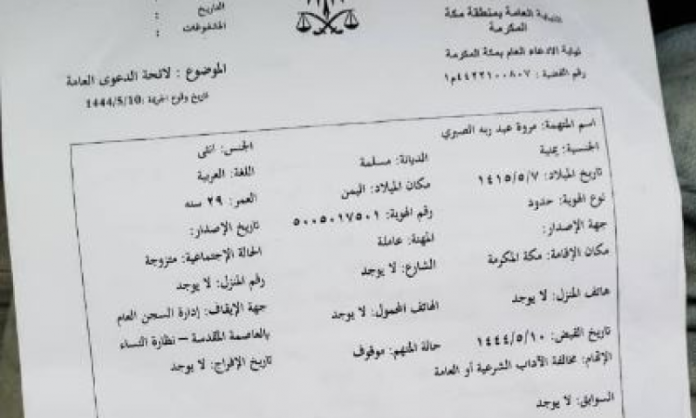 النيابة العامة بمنطقة مكة
المكرمة
نيابة الادعاء العام بمكة المكرمة
رقم القضية : ٤٤٢٢١٠٠٨٠٧م١
التاريخ :
المشفوعات :
الموضوع : لائحة الدعوى العامة
تاريخ وقوع الجريمة: 1444/5/10
اسم المتهمة: مروة عبد ربه الصبري الجنس: انثى
الجنسية: يمنية الديانة: مسلمة اللغة: العربية
تاريخ الميلاد: ١٤١٥/٥/٧ مكان الميلاد: اليمن العمر: ٢٩ سنه
نوع الهوية: حدود رقم الهوية: ٥٠٠٥٠١٧٥٠١ تاريخ الإصدار:
جهة الإصدار: المهنة: عاملة الحالة الإجتماعية: متزوجة
مكان الإقامة: مكة المكرمة الشارع: لا يوجد رقم المنزل: لا يوجد
هاتف المنزل: لا يوجد الهاتف المحمول: لا يوجد جهة الإيقاف: إدارة السجن العام
بالعاصمة المقدسة – نظارة النساء
تاريخ القبض: ١٤٤٤/٥/١٠ حالة المتهم: موقوف تاريخ الإفراج: لا يوجد
الإتهام: مخالفة الآداب الشرعية أو العامة
السوابق: لا يوجد